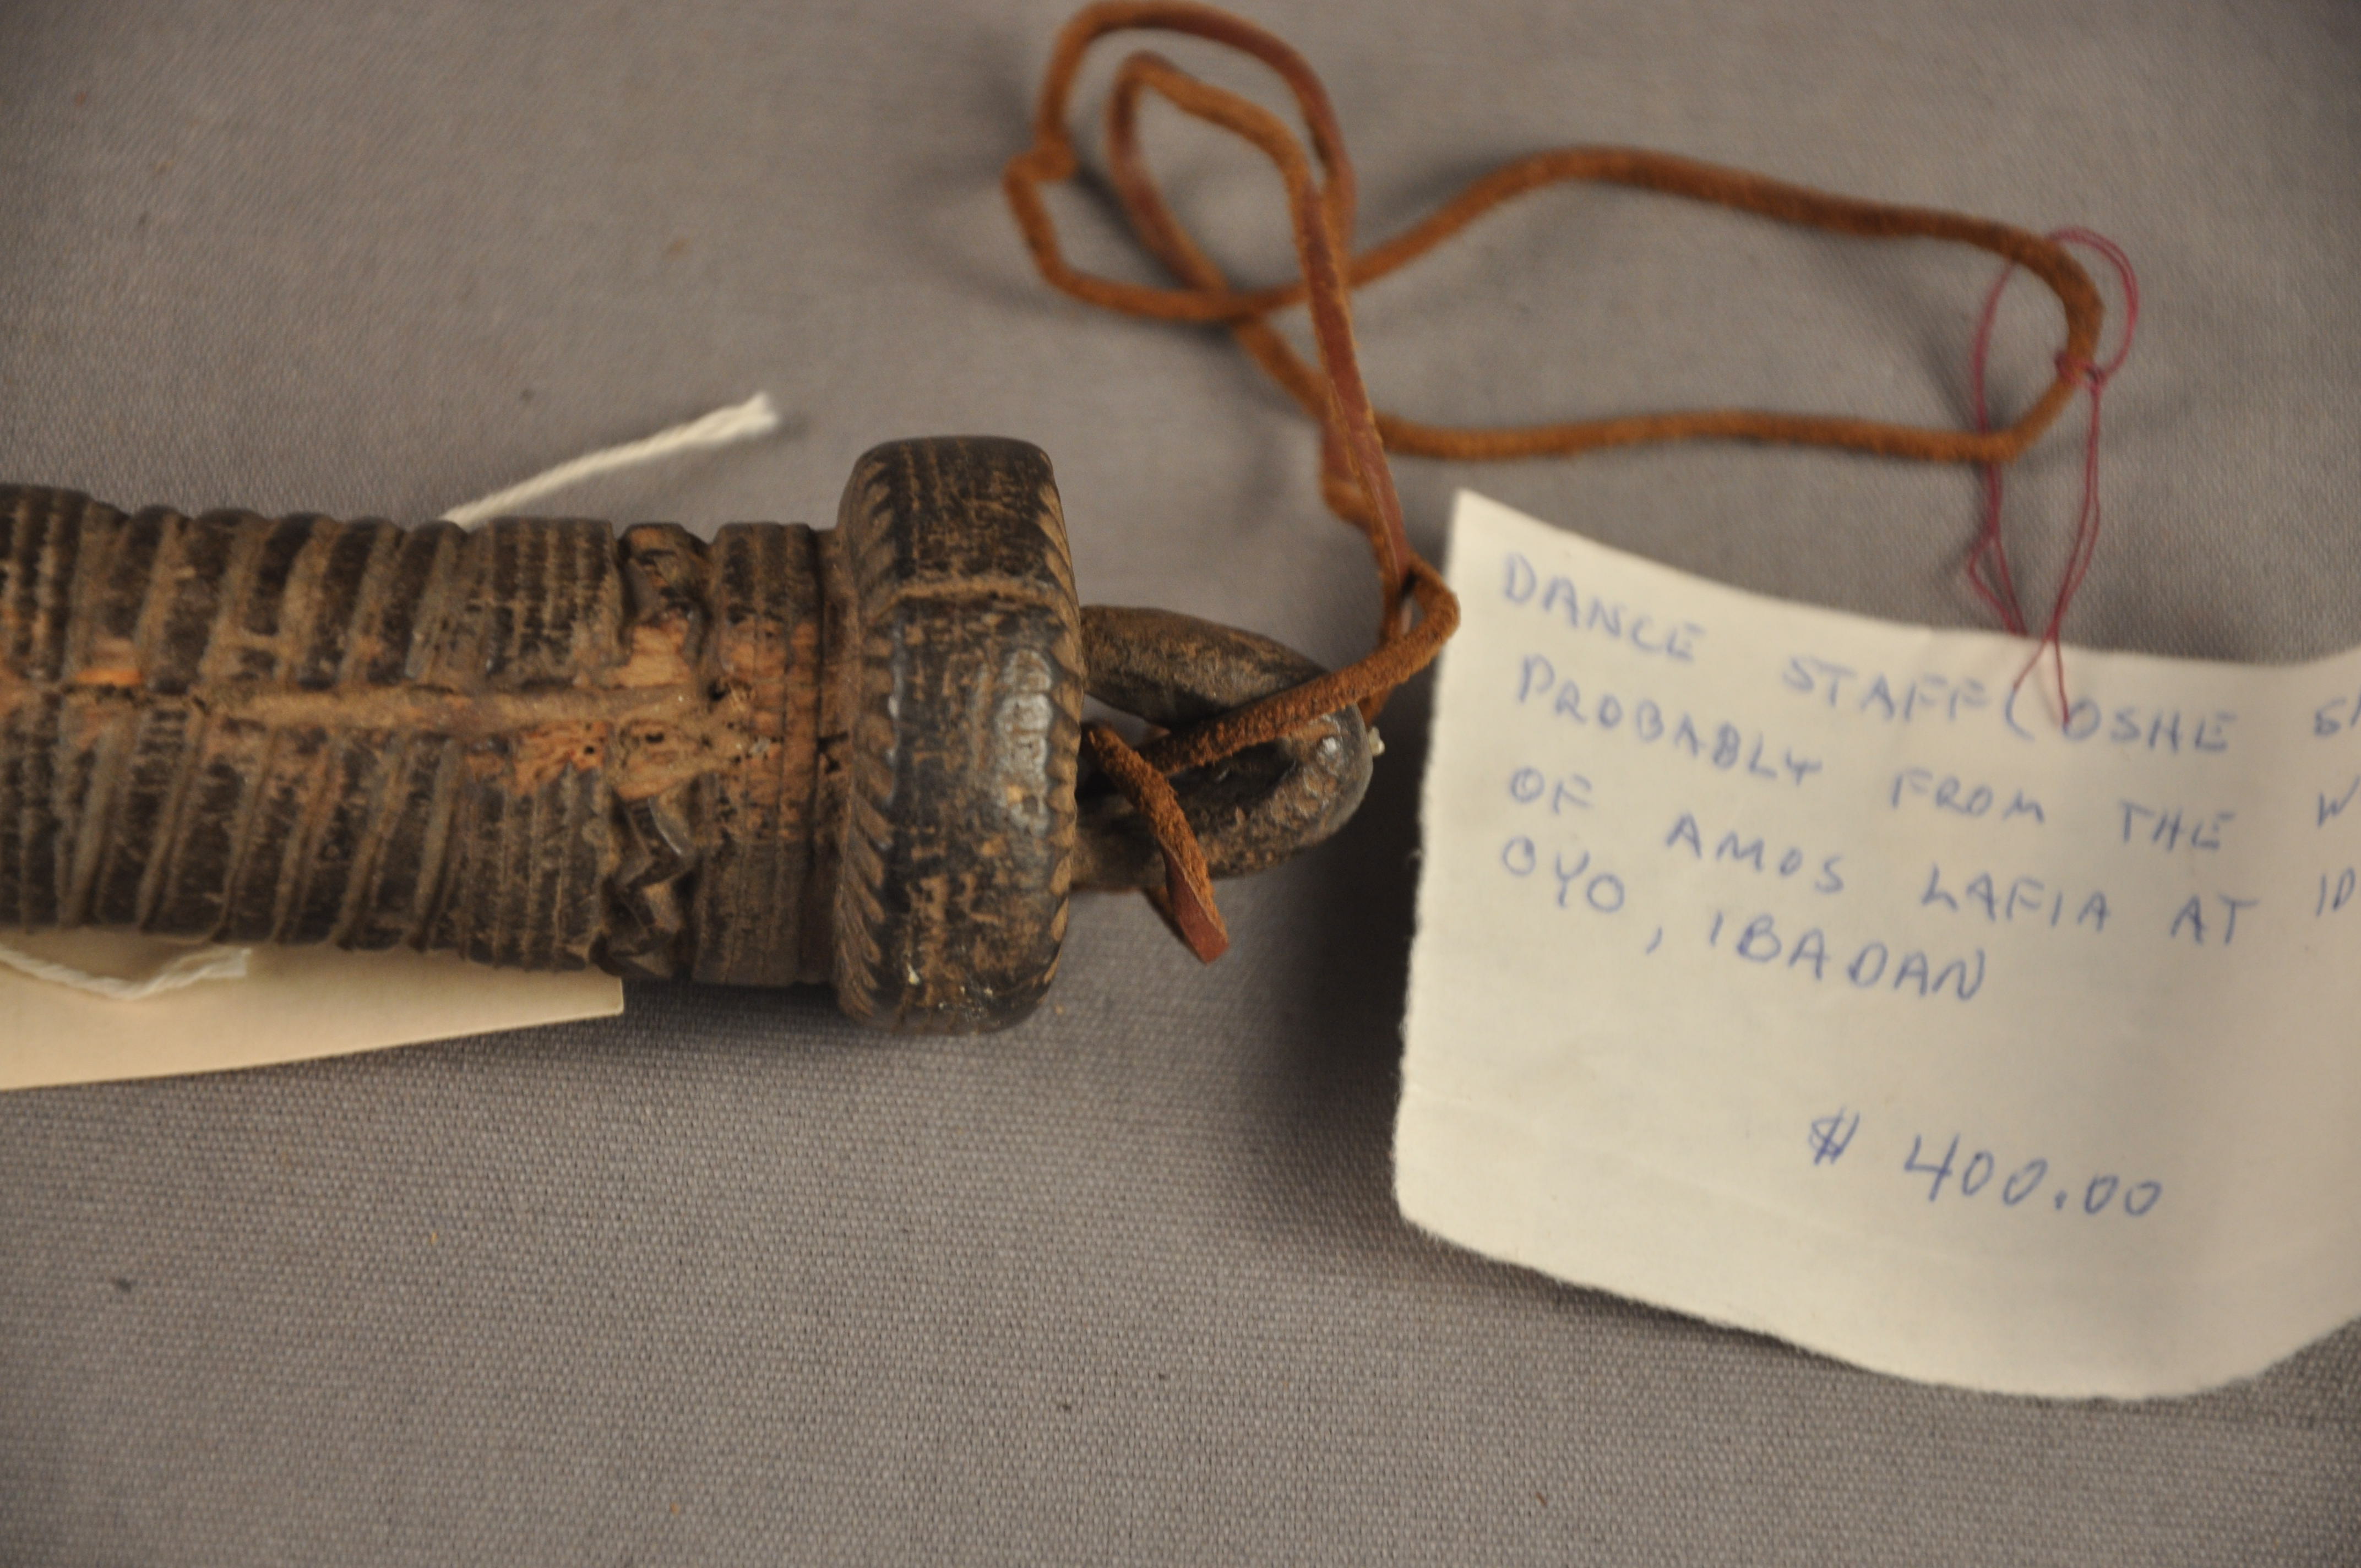 DANCE STAFF (OSHE
PROBABLY FROM THE
OF AMOS LAFIA AT
OYO, IBADAN
$ 400.00